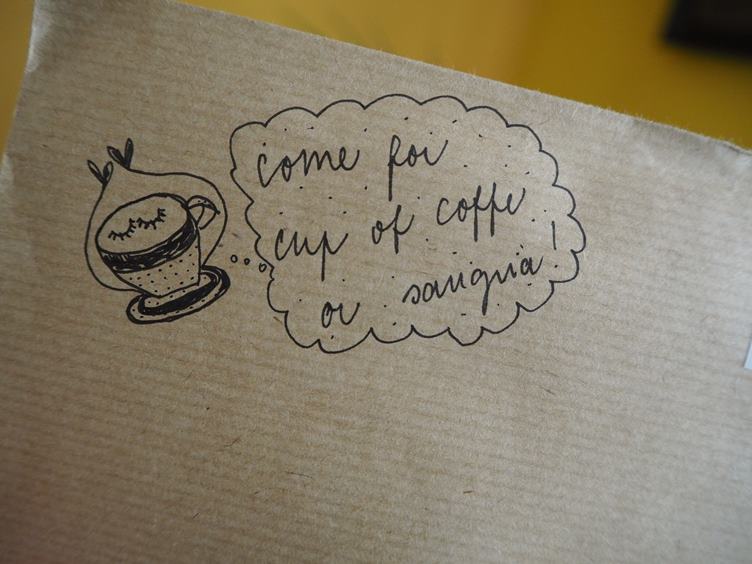 come for
cup of coffe
or sangria!